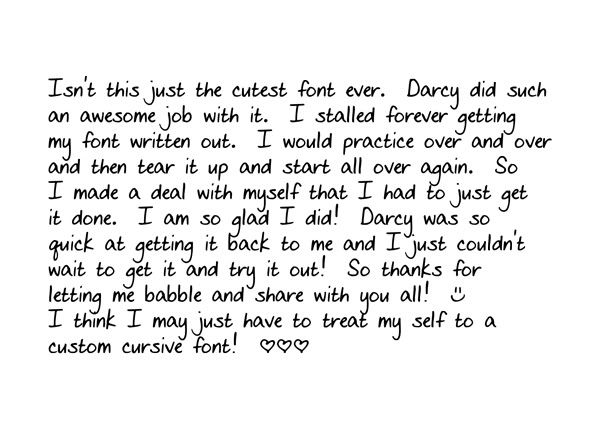 Isn't this just the cutest font ever. Darcy did such
an awesome job with it. I stalled forever getting
my font written out. I would practice over and over
and then tear it up and start all over again. So
I made a deal with myself that I had to just get
it done. I am so glad I did! Darcy was so
quick at getting it back to me and I just couldn't
wait to get it and try it out! So thanks for
letting me babble and share with you all! :)
I think I may just have to treat my self to a
custom cursive font! ♡♡♡